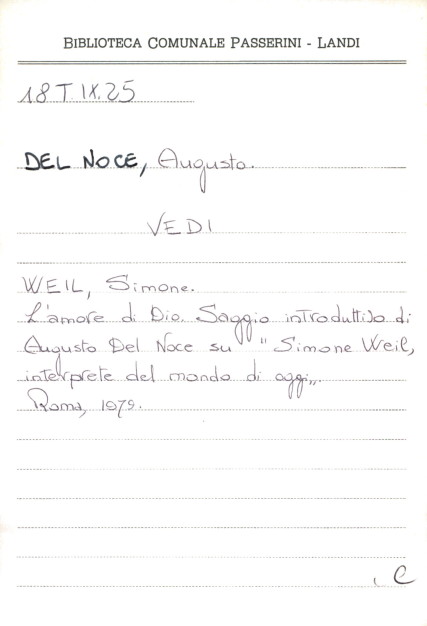 BIBLIOTECA COMUNALE PASSERINI - LANDI
18 T. IX. 25
DEL NOCE, Augusto.
VEDI
WEIL, Simone.
L'amore di Dio. Saggio introduttivo di
Augusto Del Noce su "Simone Weil,
interprete del mondo di oggi„.
Roma, 1979.
C